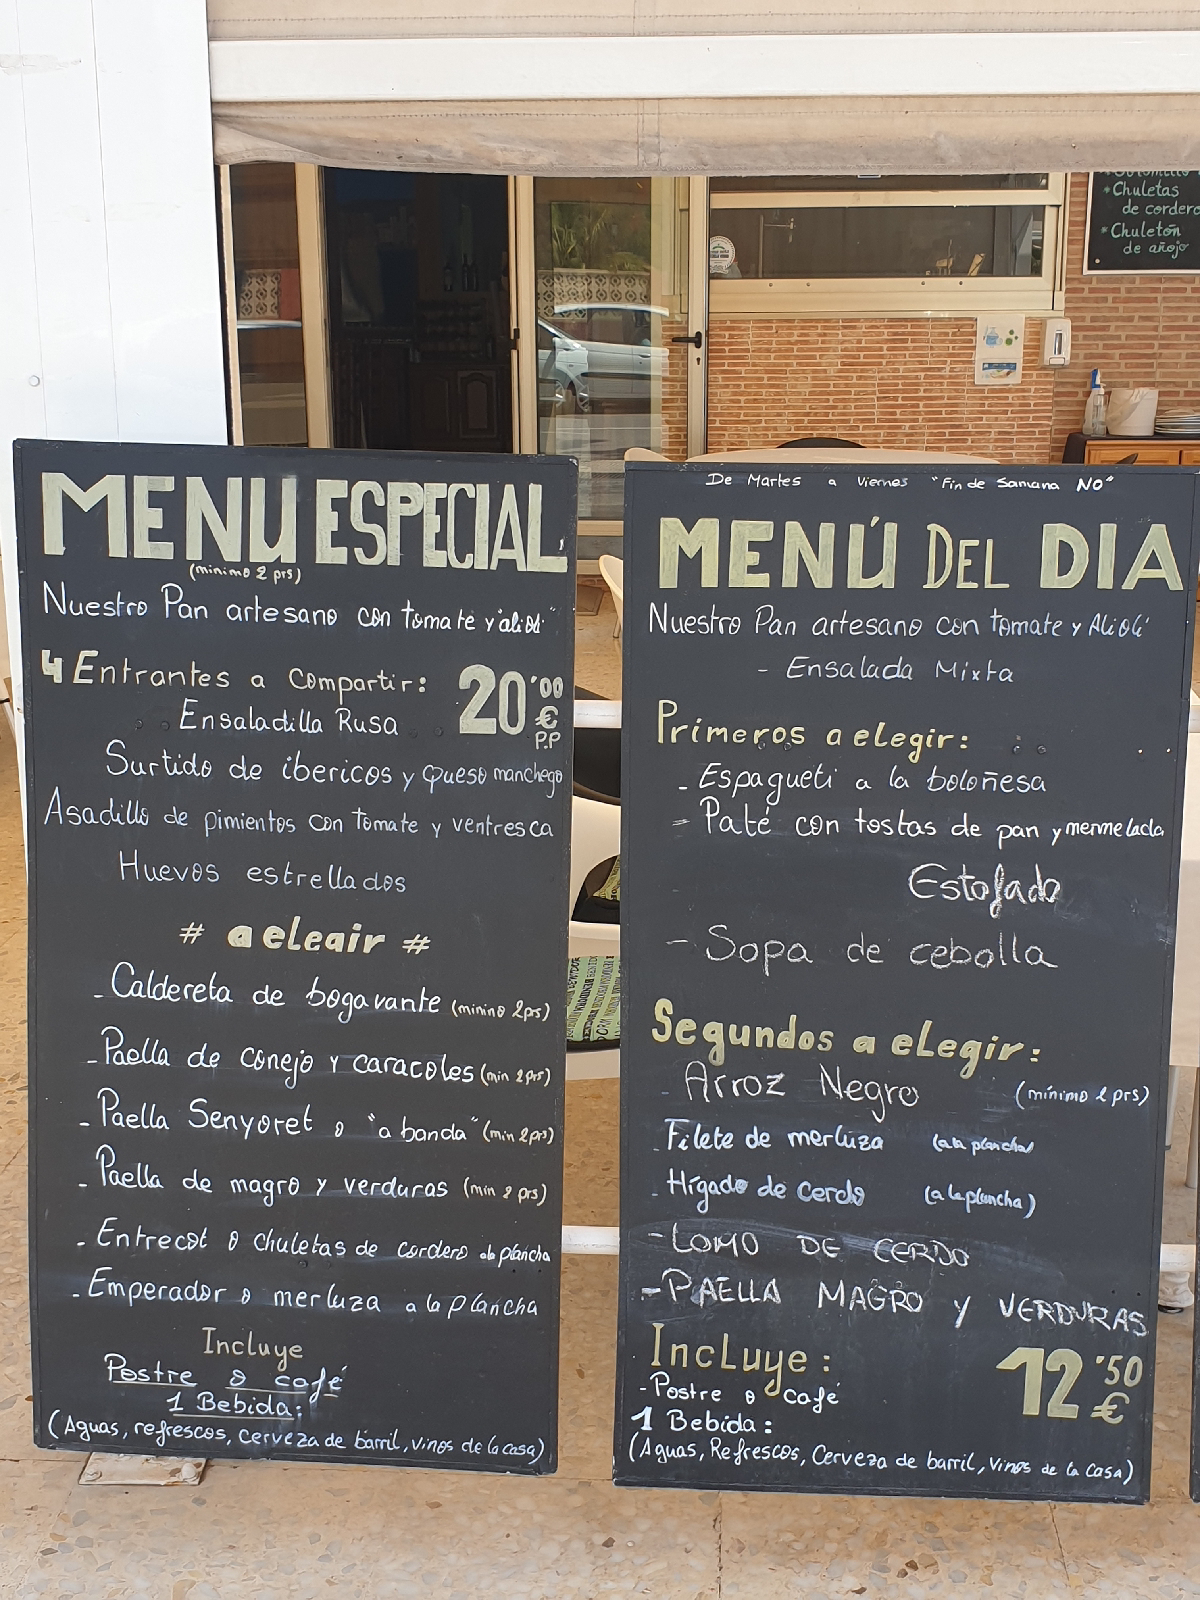 MENU ESPECIAL
(minimo 2 prs)
Nuestro Pan artesano con tomate y "alioli"
4 Entrantes a compartir:
20'00
€
P.P
Ensaladilla Rusa
Surtido de ibericos y queso manchego
Asadillo de pimientos con tomate y ventresca
Huevos estrellados
# a elegir #
- Caldereta de bogavante (minino 2 prs)
- Paella de conejo y caracoles (min 2 prs)
- Paella Senyoret o "a banda" (min 2 prs)
- Paella de magro y verduras (min 2 prs)
- Entrecot o chuletas de cordero a la plancha
- Emperador o merluza a la plancha
Incluye
Postre o café
1 Bebida:
(Aguas, refrescos, cerveza de barril, vinos de la casa)
De Martes a Viernes "Fin de Samana NO"
MENÚ DEL DIA
Nuestro Pan artesano con tomate y Alioli
- Ensalada Mixta
Primeros a elegir:
- Espagueti a la boloñesa
- Paté con tostas de pan y mermelada
Estofado
- Sopa de cebolla
Segundos a elegir:
- Arroz Negro (mínimo 2 prs)
- Filete de merluza (a la plancha)
- Hígado de cerdo (a la plancha)
- LOMO DE CERDO
- PAELLA MAGRO y VERDURAS
Incluye:
12'50
€
- Postre o café
1 Bebida:
(Aguas, Refrescos, Cerveza de barril, Vinos de la Casa)
* Chuletas
de cordero
* Chuletón
de añojo